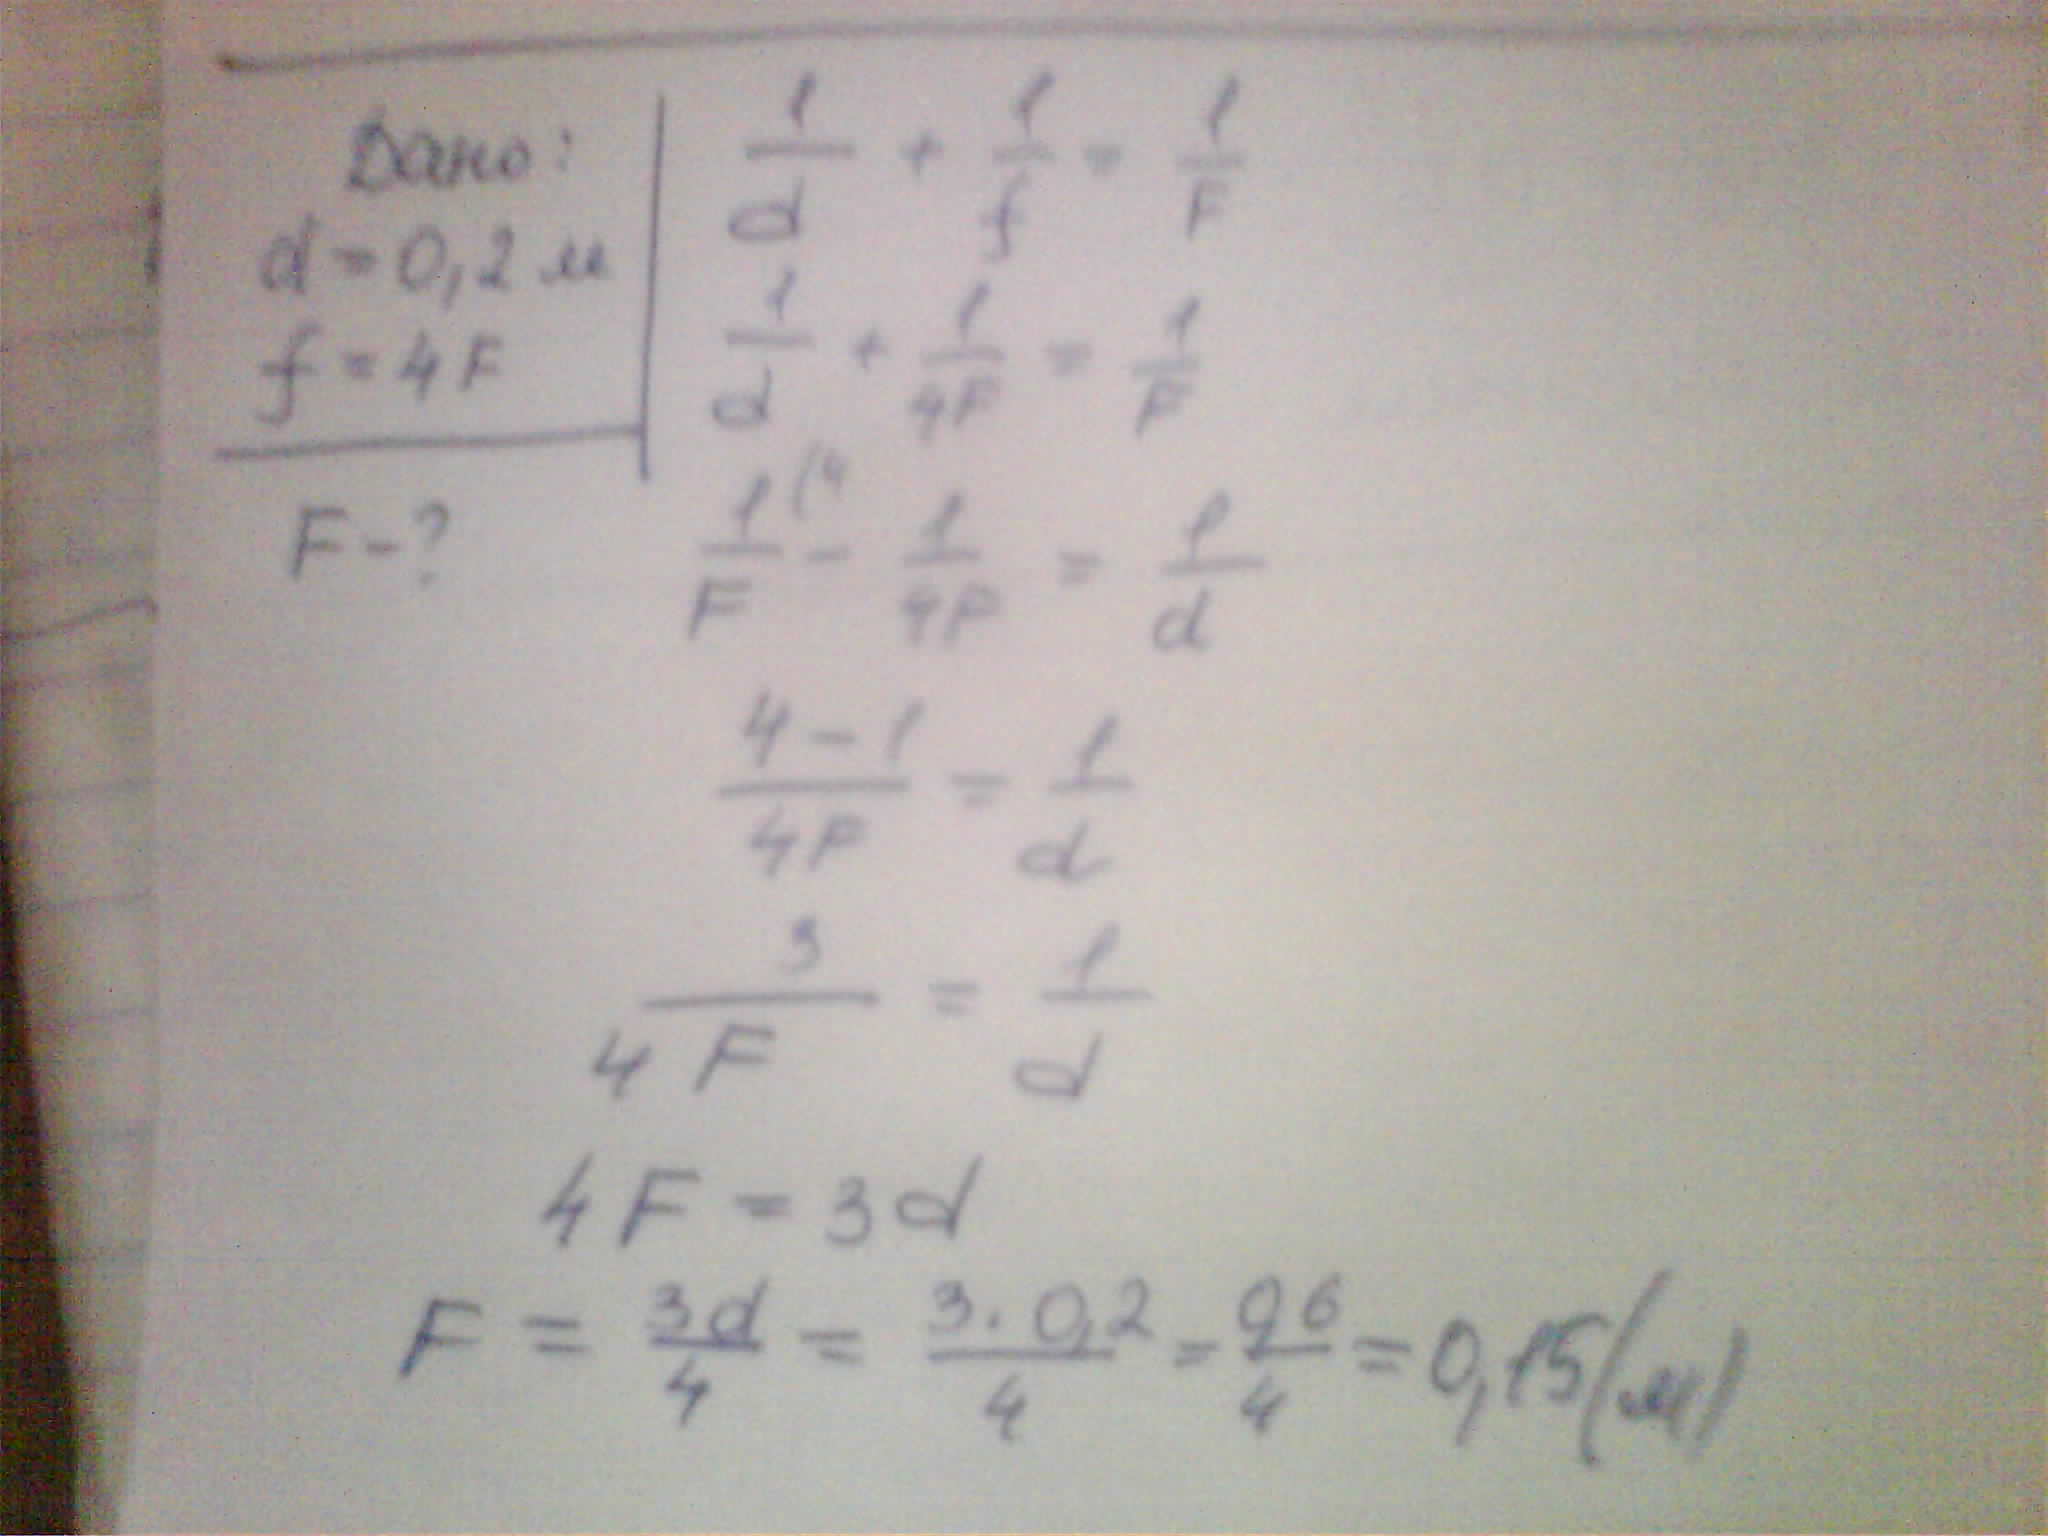 Дано:
d = 0,2 м
f = 4F
F - ?
1/d + 1/f = 1/F
1/d + 1/4F = 1/F
1/F (4 - 1/4F = 1/d
4-1/4F = 1/d
3/4F = 1/d
4F = 3d
F = 3d/4 = 3·0,2/4 = 0,6/4 = 0,15(м)